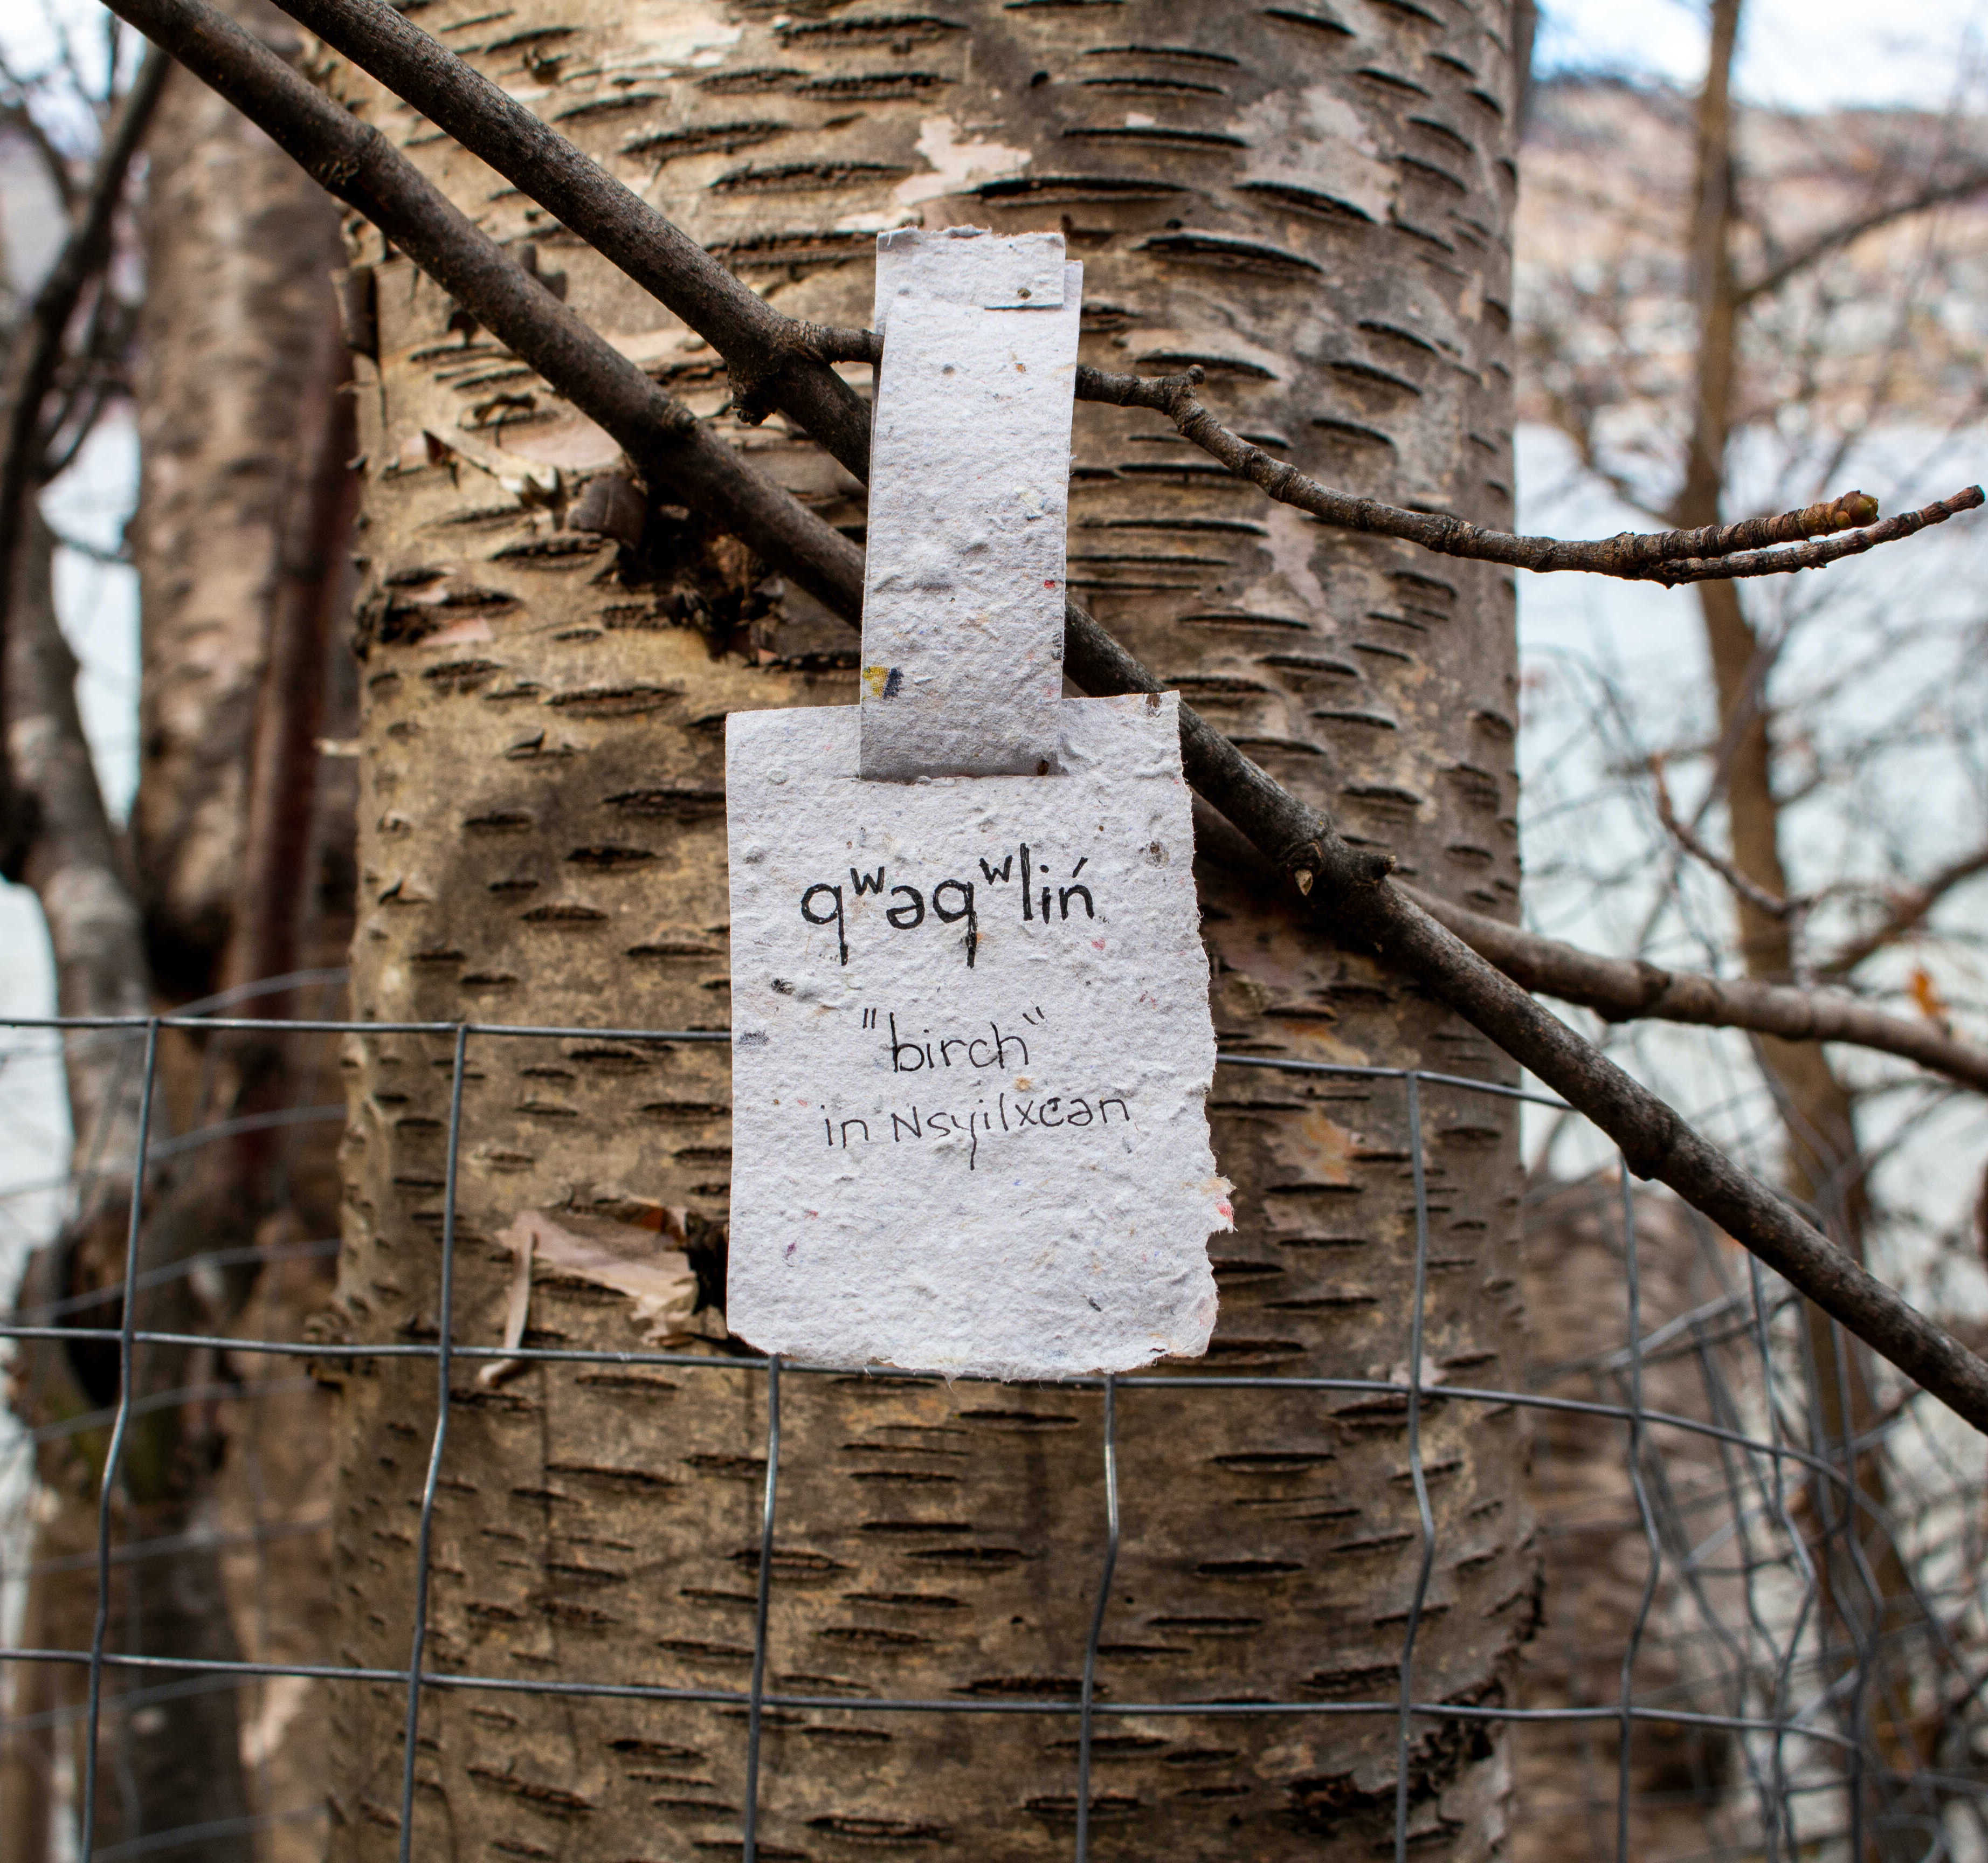 qʷəqʷliń
"birch"
in Nsyilxcən